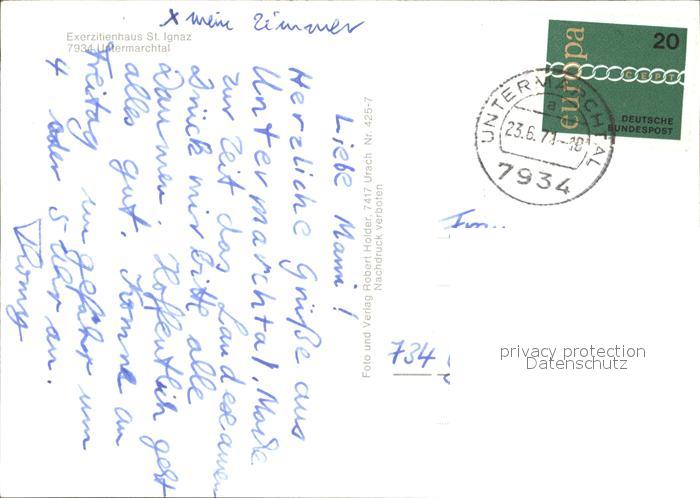 x mein Zimmer
Exerzitienhaus St. Ignaz
7934 Untermarchtal
Liebe Mami!
Herzliche Grüße aus
Untermarchtal. Mache
zur Zeit das Landexamen
Drück mir bitte alle
Daumen. Hoffentlich geht
alles gut. Komme am
Freitag ungefähr um
4 oder 5 Uhr an.
Foto und Verlag Robert Holder, 7417 Urach Nr. 425-7
Nachdruck verboten
europa
20
CEPT
DEUTSCHE
BUNDESPOST
UNTERMARCHTAL
a
23.6.71-18
7934
Frau
734
privacy protection
Datenschutz